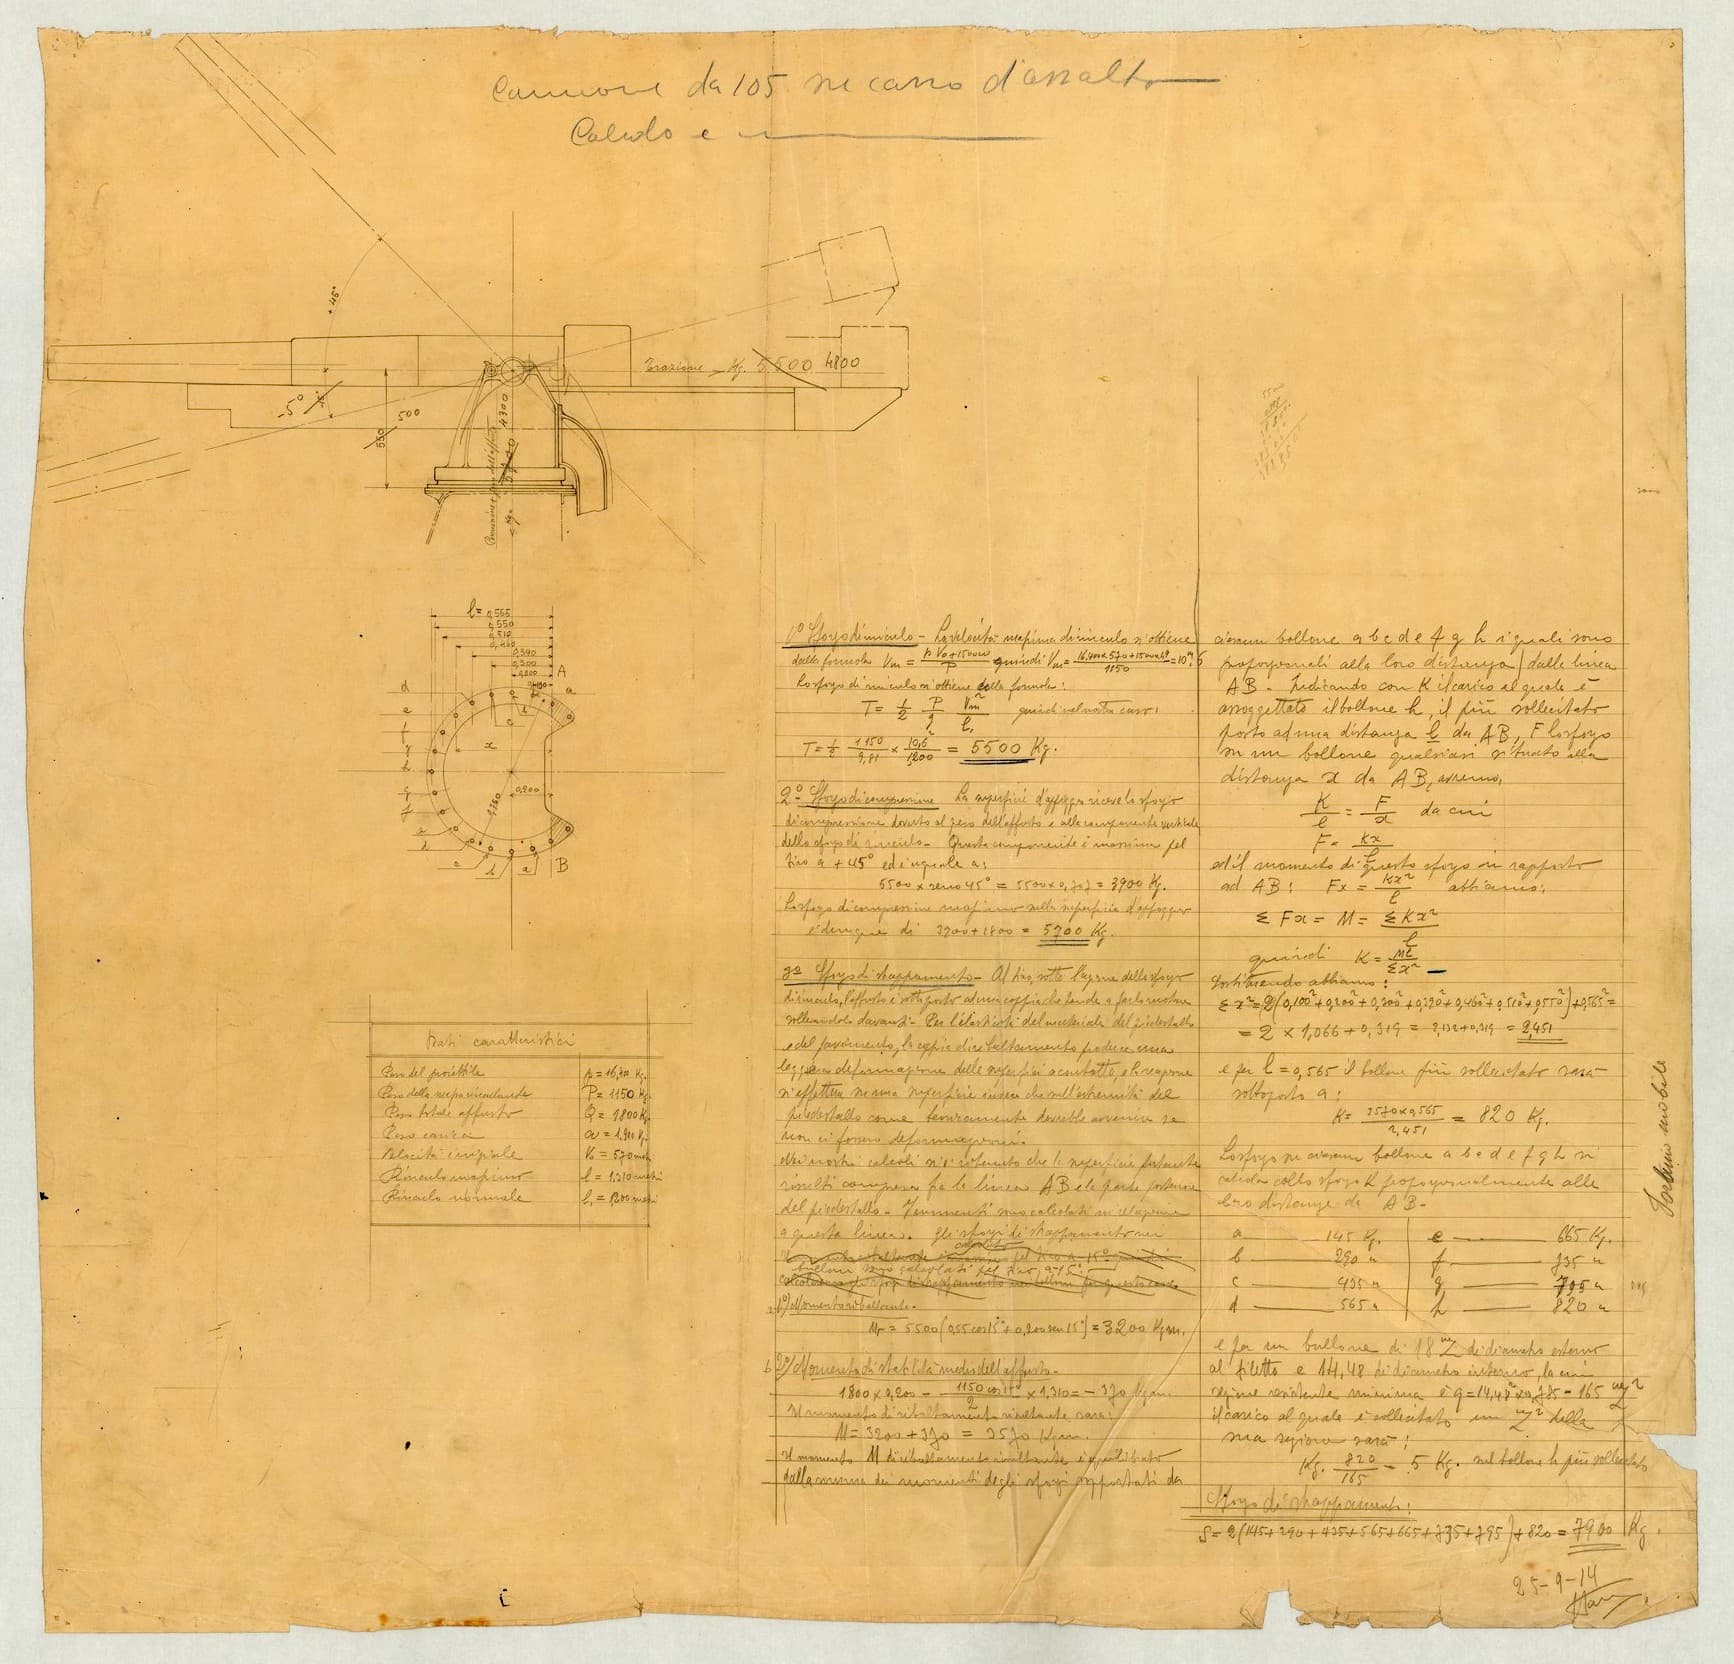 Cannone da 105 su carro d'assalto
Calcolo e
+45°
-5°
15°
550
500
Trazione Kg. 5500 4800
4300
Kg.
l = 0,565
0,550
0,510
0,460
0,390
0,300
0,200
0,100
A
d
e
f
g
h
g
f
e
d
c
b
a
a
b
c
x
0,200
B
Dati caratteristici
Peso del proiettile p = 16,400 Kg.
Peso della massa rinculante P = 1150 Kg.
Peso totale affusto Q = 1800 Kg.
Peso carica
Velocità iniziale V₀ = 570 metri
Rinculo massimo l = 1,310 metri
Rinculo normale l₁ = 1,200 metri
1° Sforzo di rinculo - La velocità massima di rinculo si ottiene
dalla formula Vm = quindi Vm = 16,400 x 570 + 1500 / 1150 = 10,6
Lo sforzo di rinculo si ottiene dalla formula:
T = 1/2 P/g Vm²/l₁ quindi nel nostro caso:
T = 1/2 1150/9,81 x 10,6²/1,200 = 5500 Kg.
2° Sforzo di compressione La superficie d'appoggio riceve lo sforzo
di compressione dovuto al peso dell'affusto e alla componente verticale
dello sforzo di rinculo - Questa componente è massima pel
tiro a +45° ed è uguale a:
5500 x seno 45° = 5500 x 0,707 = 3900 Kg.
Lo sforzo di compressione massimo sulla superficie d'appoggio
è dunque di 3900 + 1800 = 5700 Kg.
3° Sforzo di strappamento - Al tiro, sotto l'azione dello sforzo
di rinculo, l'affusto è sottoposto ad una coppia che tende a farlo ruotare
sollevandolo davanti - Per l'elasticità del materiale del piedestallo
e del pavimento, la coppia di ribaltamento produce una
leggera deformazione delle superfici a contatto, e la reazione
si effettua su una superficie invece che sull'estremità del
piedestallo come teoricamente dovrebbe avvenire se
non ci fossero deformazioni.
Nei nostri calcoli si è ritenuto che la superficie portante
risulti compresa fra la linea AB e la parte posteriore
del piedestallo - I momenti sono calcolati in relazione
a questa linea. Gli sforzi di strappamento sui
bulloni sono calcolati pel tiro a -15°
1°) Momento ribaltante -
Mr = 5500 (0,55 cos 15° + 0,200 sen 15°) = 3200 Kgm.
2°) Momento di stabilità medio dell'affusto -
1800 x 0,200 - 1150 cos 15°/2 x 1,310 = - 370 Kgm.
Il momento di ribaltamento risultante sarà:
M = 3200 + 370 = 3570 Kgm.
Il momento M di ribaltamento risultante è equilibrato
dalla somma dei momenti degli sforzi sopportati da
ciascun bollone a b c d e f g h i quali sono
proporzionali alla loro distanza dalla linea
AB - Indicando con K il carico al quale è
assoggettato il bollone h, il più sollecitato
posto ad una distanza l da AB, F lo sforzo
su un bollone qualsiasi situato alla
distanza x da AB, avremo,
K/l = F/x da cui
F = Kx/l
ed il momento di questo sforzo in rapporto
ad AB: Fx = Kx²/l abbiamo:
Σ Fx = M = Σ Kx²/l
quindi K = Ml/Σx²
Sostituendo abbiamo:
Σx² = 2(0,100² + 0,200² + 0,300² + 0,390² + 0,460² + 0,510² + 0,550²) + 0,565² =
= 2 x 1,066 + 0,319 = 2,132 + 0,319 = 2,451
e per l = 0,565 il bollone più sollecitato sarà
sottoposto a:
K = 3570 x 0,565 / 2,451 = 820 Kg.
Lo sforzo su ciascun bollone a b c d e f g h si
calcola collo sforzo K proporzionalmente alle
loro distanze da AB -
a 145 Kg. e 665 Kg.
b 290 " f 735 "
c 435 " g 795 "
d 565 " h 820 "
e per un bullone di 18 m/m di diametro esterno
al filetto e 14,48 di diametro interno, la cui
sezione resistente minima è q = 14,48² x 0,785 = 165 m/m²
il carico al quale è sollecitato un m/m² della
sua sezione sarà:
Kg. 820/165 = 5 Kg. sul bollone h più sollecitato
Sforzo di strappamento:
S = 2(145 + 290 + 435 + 565 + 665 + 735 + 795) + 820 = 7900 Kg.
25-9-14